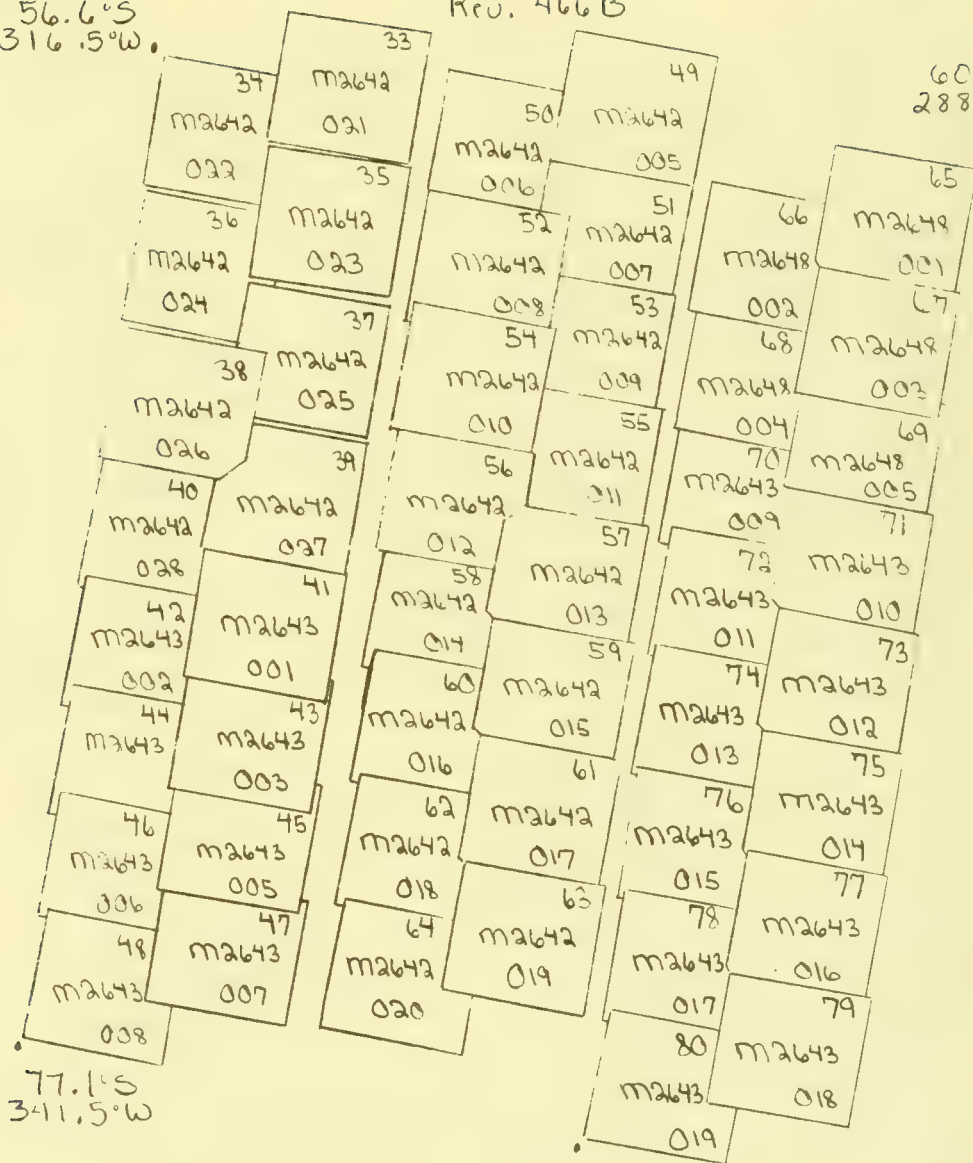 56.6°S
316.5°W
Rev. 466B
60
288
33
m2642
021
34
m2642
022
35
m2642
023
36
m2642
024
37
m2642
025
38
m2642
026
39
m2642
027
40
m2642
028
41
m2643
001
42
m2643
002
43
m2643
003
44
m2643
45
m2643
005
46
m2643
006
47
m2643
007
48
m2643
008
77.1°S
341.5°W
49
m2642
005
50
m2642
006
51
m2642
007
52
m2642
008
53
m2642
009
54
m2642
010
55
m2642
011
56
m2642
012
57
m2642
013
58
m2642
014
59
m2642
015
60
m2642
016
61
m2642
017
62
m2642
018
63
m2642
019
64
m2642
020
65
m2648
001
66
m2648
002
67
m2648
003
68
m2648
004
69
m2648
005
70
m2643
009
71
m2643
010
72
m2643
011
73
m2643
012
74
m2643
013
75
m2643
014
76
m2643
015
77
m2643
016
78
m2643
017
79
m2643
018
80
m2643
019